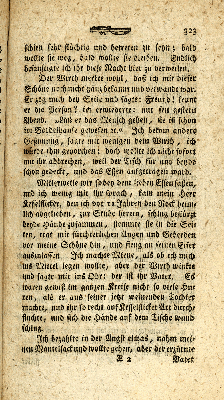 323
schien sehr flüchtig und betreten zu seyn; bald
wollte sie weg, bald wollte sie bleiben. Endlich
beschloß sie die Nacht hier zu verweilen.
Der Wirth merkte wohl, daß ich mit dieser
Schöne noch nicht ganz bekannt und verwandt war.
Er zog mich bey Seite und sagte: Freund! kennt
er die Person? ich erwiederte: nur seit gestern
Abend. Kenn er das Mensch gehen, sie ist schon
in Bordellhause gewesen etc. Ich bekam andere
Gesinnung, sagte mit wenigem dem Wirth, ich
würde schon gewöhnt: doch wollte ich nicht sofort
mit ihr abbrechen, weil der Tisch für uns beyde
schon gedeckt, und das Essen aufgetragen ward.
Mittlerweile wir sodey dem Essen saßen,
und ich wenig acht für Gram, kam mein Herr
Kesselflicker, den ich vor 12 Jahren den Rock heim-
lich abgeliehen, zur Stube herein, schlug beyde
Hände zusammen, stemmte sie in die Sei-
ten, trat mit fürchterlichen Augen und Geberden
vor meine Schöne hin, und fieng an seinen Eifer
auszulassen. Ich machte Miene, als ob ich mich
ins Mittel legen wollte, aber der Wirth winkte
und sagte mir ins Ohr: der ist ihr Vater. Es
waren gewiß im ganzen Kreise nicht so viele Hu-
ren, als er aus seiner jetzt weinenden Tochter
machte, und ihr so recht auf Kesselflicker Art durch-
fluchte, und sich die Hände auf dem Tische wund-
schlug.
Ich bezahlte in der Angst etwas, nahm mei-
nen Mantelsack und wollte gehen, aber der erzürnte
X 2 Vater